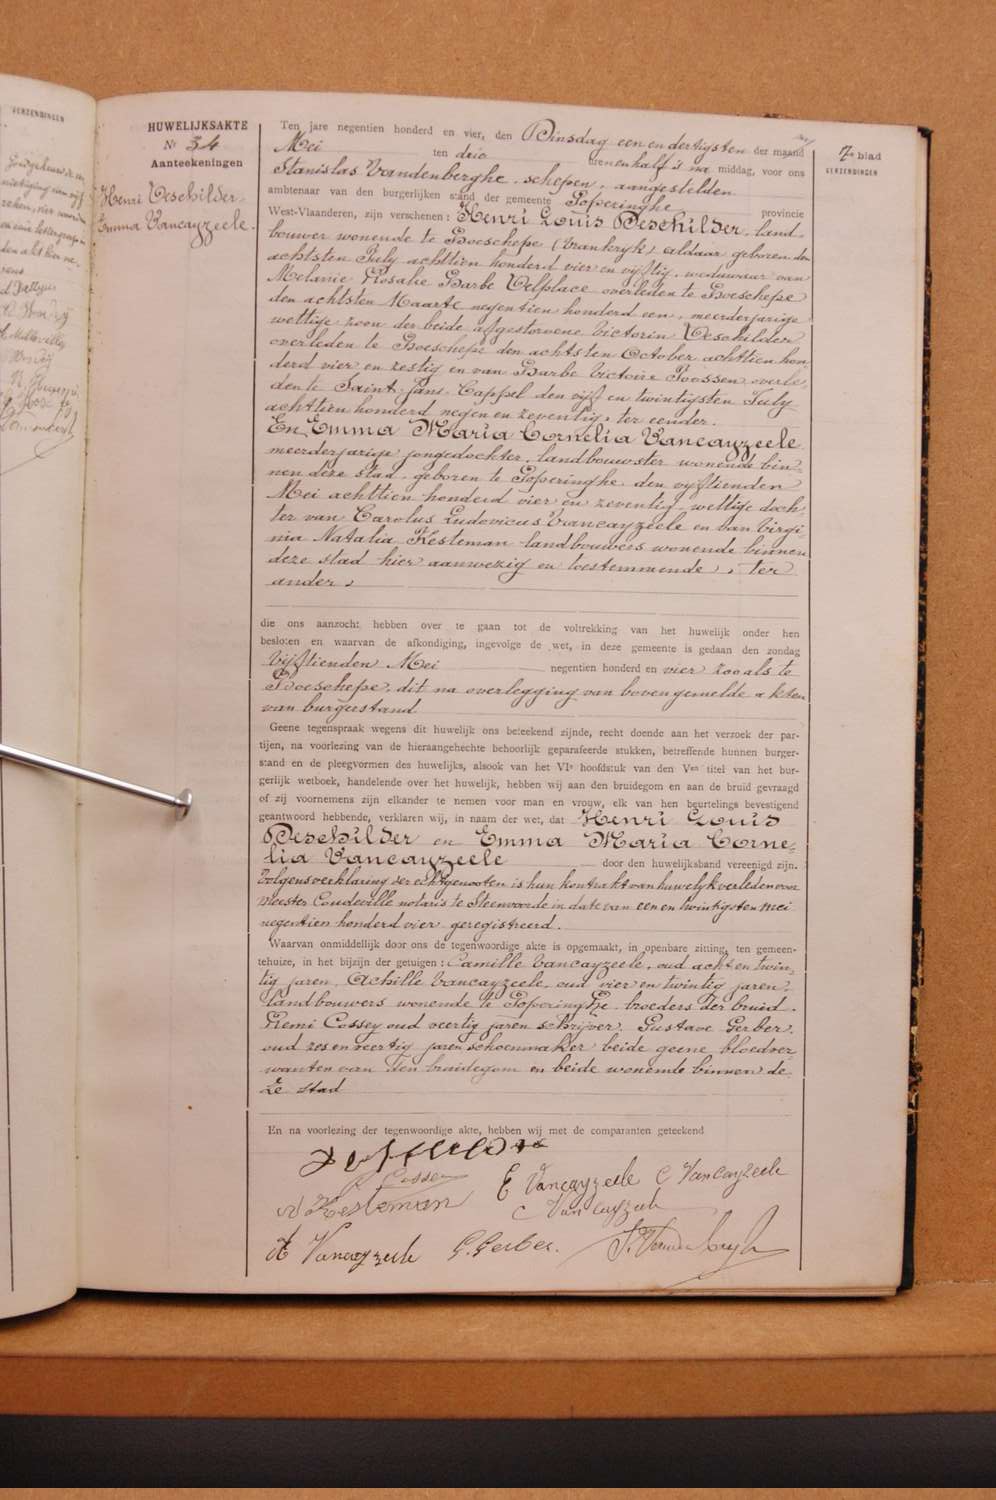 VERZENDINGEN
HUWELIJKSAKTE
Nr 34
Aanteekeningen
Henri Deschilder.
Emma Vancayzeele.
7e blad
VERZENDINGEN
Ten jare negentien honderd en vier, den Dinsdag een en dertigsten der maand
Mei ten drie uren en half 's na middag, voor ons
Stanislas Vandenberghe, schepen, aangestelden
ambtenaar van den burgerlijken stand der gemeente Poperinghe provincie
West-Vlaanderen, zijn verschenen : Henri Louis Deschilder, land-
bouwer wonende te Boeschepe (Vrankryk) aldaar geboren den
achtsten July achttien honderd vier en vijftig, weduwaar van
Melanie Rosalie Barbe Delplace overleden te Boeschepe
den achtsten Maarte negentien honderd een, meerderjarige
wettige zoon der beide afgestorvene Victorin Deschilder
overleden te Boeschepe den achtsten October achttien hon
derd vier en zestig en van Barbe Victoire Joossen overle
den te Saint-Jans-Cappel den vijf en twintigsten July
achttien honderd negen en zeventig, ter eender.
En Emma Maria Cornelia Vancayzeele
meerderjarige jongedochter, landbouwster wonende bin-
nen deze stad, geboren te Poperinghe den vyftienden
Mei achttien honderd vier en zeventig, wettige doch-
ter van Carolus Ludovicus Vancayzeele en van Virgi-
nia Natalia Kesteman landbouwers wonende binnen
deze stad hier aanwezig en toestemmende, ter
ander,
die ons aanzocht hebben over te gaan tot de voltrekking van het huwelijk onder hen
besloten en waarvan de afkondiging, ingevolge de wet, in deze gemeente is gedaan den zondag
Vijftienden Mei negentien honderd en vier zooals te
Boeschepe, dit na overlegging van bovengemelde akten
van burgerstand
Geene tegenspraak wegens dit huwelijk ons beteekend zijnde, recht doende aan het verzoek der par-
tijen, na voorlezing van de hieraangehechte behoorlijk geparafeerde stukken, betreffende hunnen burger-
stand en de pleegvormen des huwelijks, alsook van het VIe hoofdstuk van den Ven titel van het bur-
gerlijk wetboek, handelende over het huwelijk, hebben wij aan den bruidegom en aan de bruid gevraagd
of zij voornemens zijn elkander te nemen voor man en vrouw, elk van hen beurtelings bevestigend
geantwoord hebbende, verklaren wij, in naam der wet, dat Henri Louis
Deschilder en Emma Maria Corne-
lia Vancayzeele door den huwelijksband vereenigd zijn.
Volgens verklaring der echtgenooten is hun kontrakt van huwelyk verleden voor
meester Coudeville notaris te Steenvoorde in date van een en twintigsten mei
negentien honderd vier geregistreerd.
Waarvan onmiddelijk door ons de tegenwoordige akte is opgemaakt, in openbare zitting, ten gemeen-
tehuize, in het bijzijn der getuigen : Camille Vancayzeele, oud acht en twin-
tig jaren, Achille Vancayzeele, oud vier en twintig jaren,
landbouwers wonende te Poperinghe broeders der bruid.
Remi Cossey oud veertig jaren schrijver, Gustave Gerber,
oud zes en veertig jaren schoenmaker beide geene bloedver-
wanten van den bruidegom en beide wonende binnen de-
ze stad
En na voorlezing der tegenwoordige akte, hebben wij met de comparanten geteekend
Deschilder
Cossey
E Vancayzeele C Vancayzeele
Kesteman C Vancayzeele
A Vancayzeele G. Gerber. S. Vandenberghe